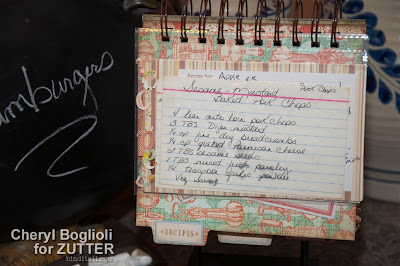 amburgers
Recipe for:
Pork Chops
Sesame - Mustard
Baked Pork Chops
4 lean cute loin pork chops
3 TBS Dijon mustard
1/4 cup fine, dry breadcrumbs
1/4 cup grated Parmesan cheese
2 TBS sesame seeds
1 TBS minced fresh parsley
1/4 teaspoon garlic powder
RECIPES
Cheryl Boglioli
for ZUTTER
binditall.com